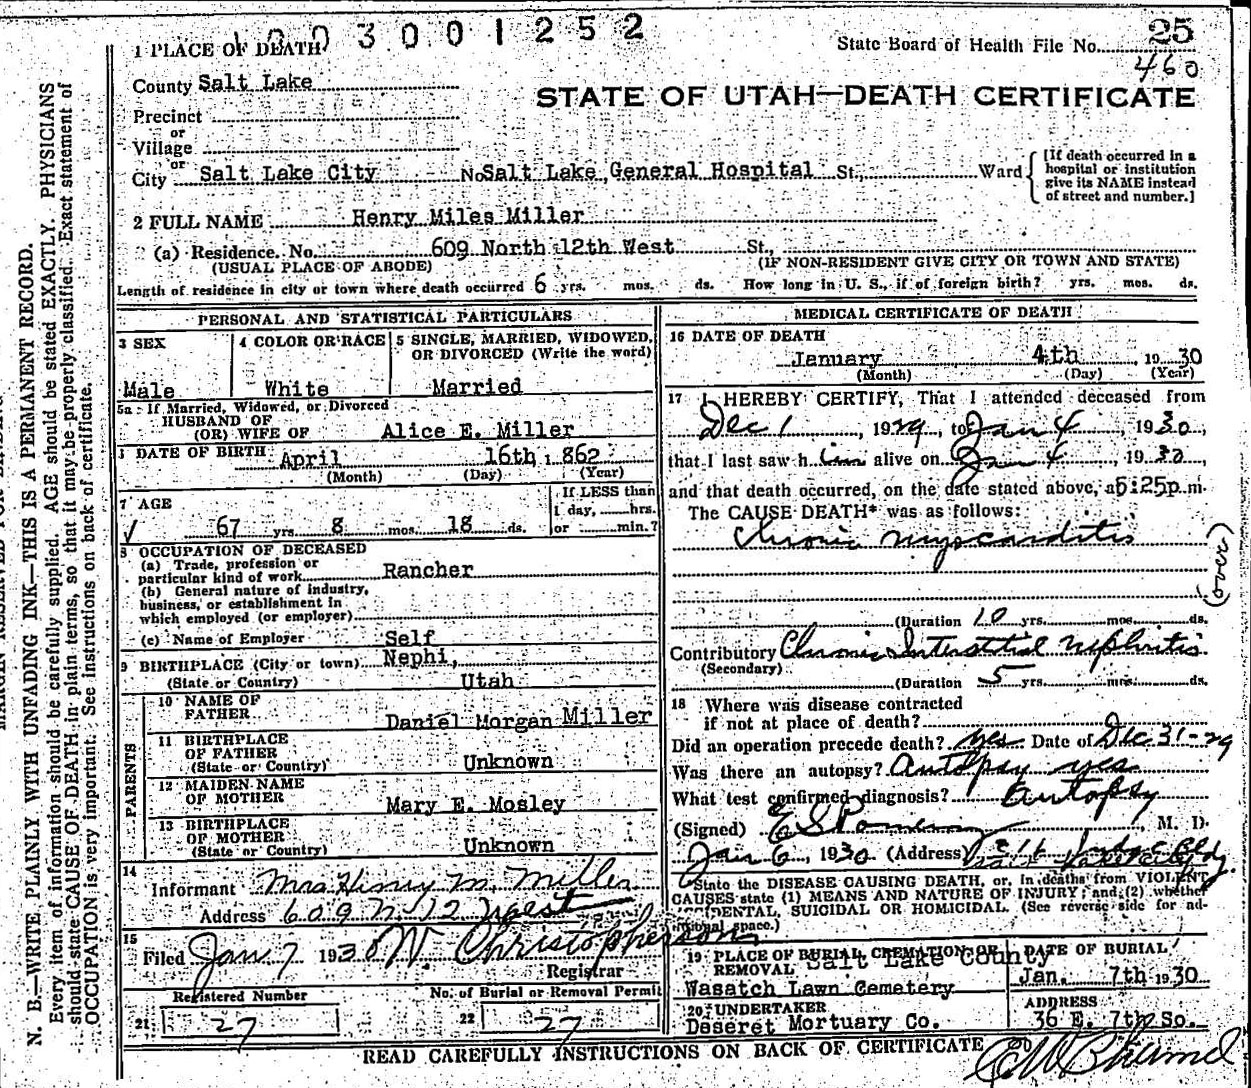 1003001252
25
State Board of Health File No.
460
1 PLACE OF DEATH
County Salt Lake
STATE OF UTAH—DEATH CERTIFICATE
Precinct
or
Village
or
City Salt Lake City No Salt Lake General Hospital St., Ward
[If death occurred in a hospital or institution give its NAME instead of street and number.]
2 FULL NAME Henry Miles Miller
(a) Residence. No. 609 North 12th West St.,
(USUAL PLACE OF ABODE) (IF NON-RESIDENT GIVE CITY OR TOWN AND STATE)
Length of residence in city or town where death occurred 6 yrs. mos. ds. How long in U. S., if of foreign birth? yrs. mos. ds.
PERSONAL AND STATISTICAL PARTICULARS
3 SEX
Male
4 COLOR OR RACE
White
5 SINGLE, MARRIED, WIDOWED,
OR DIVORCED (Write the word)
Married
5a If Married, Widowed, or Divorced
HUSBAND OF
(OR) WIFE OF Alice E. Miller
DATE OF BIRTH April 16th, 862
(Month) (Day) (Year)
7 AGE
67 yrs. 8 mos. 18 ds.
If LESS than
1 day, hrs.
or min.?
8 OCCUPATION OF DECEASED
(a) Trade, profession or
particular kind of work Rancher
(b) General nature of industry,
business, or establishment in
which employed (or employer)
(c) Name of Employer Self
9 BIRTHPLACE (City or town) Nephi,
(State or Country) Utah
PARENTS
10 NAME OF
FATHER Daniel Morgan Miller
11 BIRTHPLACE
OF FATHER
(State or Country) Unknown
12 MAIDEN NAME
OF MOTHER Mary E. Mosley
13 BIRTHPLACE
OF MOTHER
(State or Country) Unknown
14
Informant Mrs Henry M. Miller
Address 609 N. 12 West
15
Filed Jan 7 1930 W. Christopherson
Registrar
Registered Number
21 27
No. of Burial or Removal Permit
22 27
MEDICAL CERTIFICATE OF DEATH
16 DATE OF DEATH
January 4th, 1930
(Month) (Day) (Year)
17 I HEREBY CERTIFY, That I attended deceased from
Dec 1, 1929, to Jan 4, 1930,
that I last saw him alive on Jan 4, 1930,
and that death occurred, on the date stated above, a 5:25p.m.
The CAUSE DEATH* was as follows:
Chronic myocarditis
(over)
(Duration 10 yrs. mos. ds.
Contributory Chronic Interstitial Nephritis
(Secondary)
(Duration 5 yrs. mos. ds.
18 Where was disease contracted
if not at place of death?
Did an operation precede death? Yes Date of Dec 31-29
Was there an autopsy? Autopsy yes
What test confirmed diagnosis? Autopsy
(Signed) E S Pomeroy, M. D.
Jan 6, 1930 (Address)
State the DISEASE CAUSING DEATH, or, in deaths from VIOLENT
CAUSES state (1) MEANS AND NATURE OF INJURY; and (2) whether
DENTAL, SUICIDAL OR HOMICIDAL. (See reverse side for ad-
itional space.)
19 PLACE OF BURIAL CREMATION OR
REMOVAL Salt Lake County
Wasatch Lawn Cemetery
DATE OF BURIAL
Jan. 7th 1930
20 UNDERTAKER
Deseret Mortuary Co.
ADDRESS
36 E. 7th So.
READ CAREFULLY INSTRUCTIONS ON BACK OF CERTIFICATE
N. B.—WRITE PLAINLY WITH UNFADING INK—THIS IS A PERMANENT RECORD.
Every item of information should be carefully supplied. AGE should be stated EXACTLY. PHYSICIANS
should state CAUSE OF DEATH in plain terms, so that it may be properly classified. Exact statement of
OCCUPATION is very important. See instructions on back of certificate.